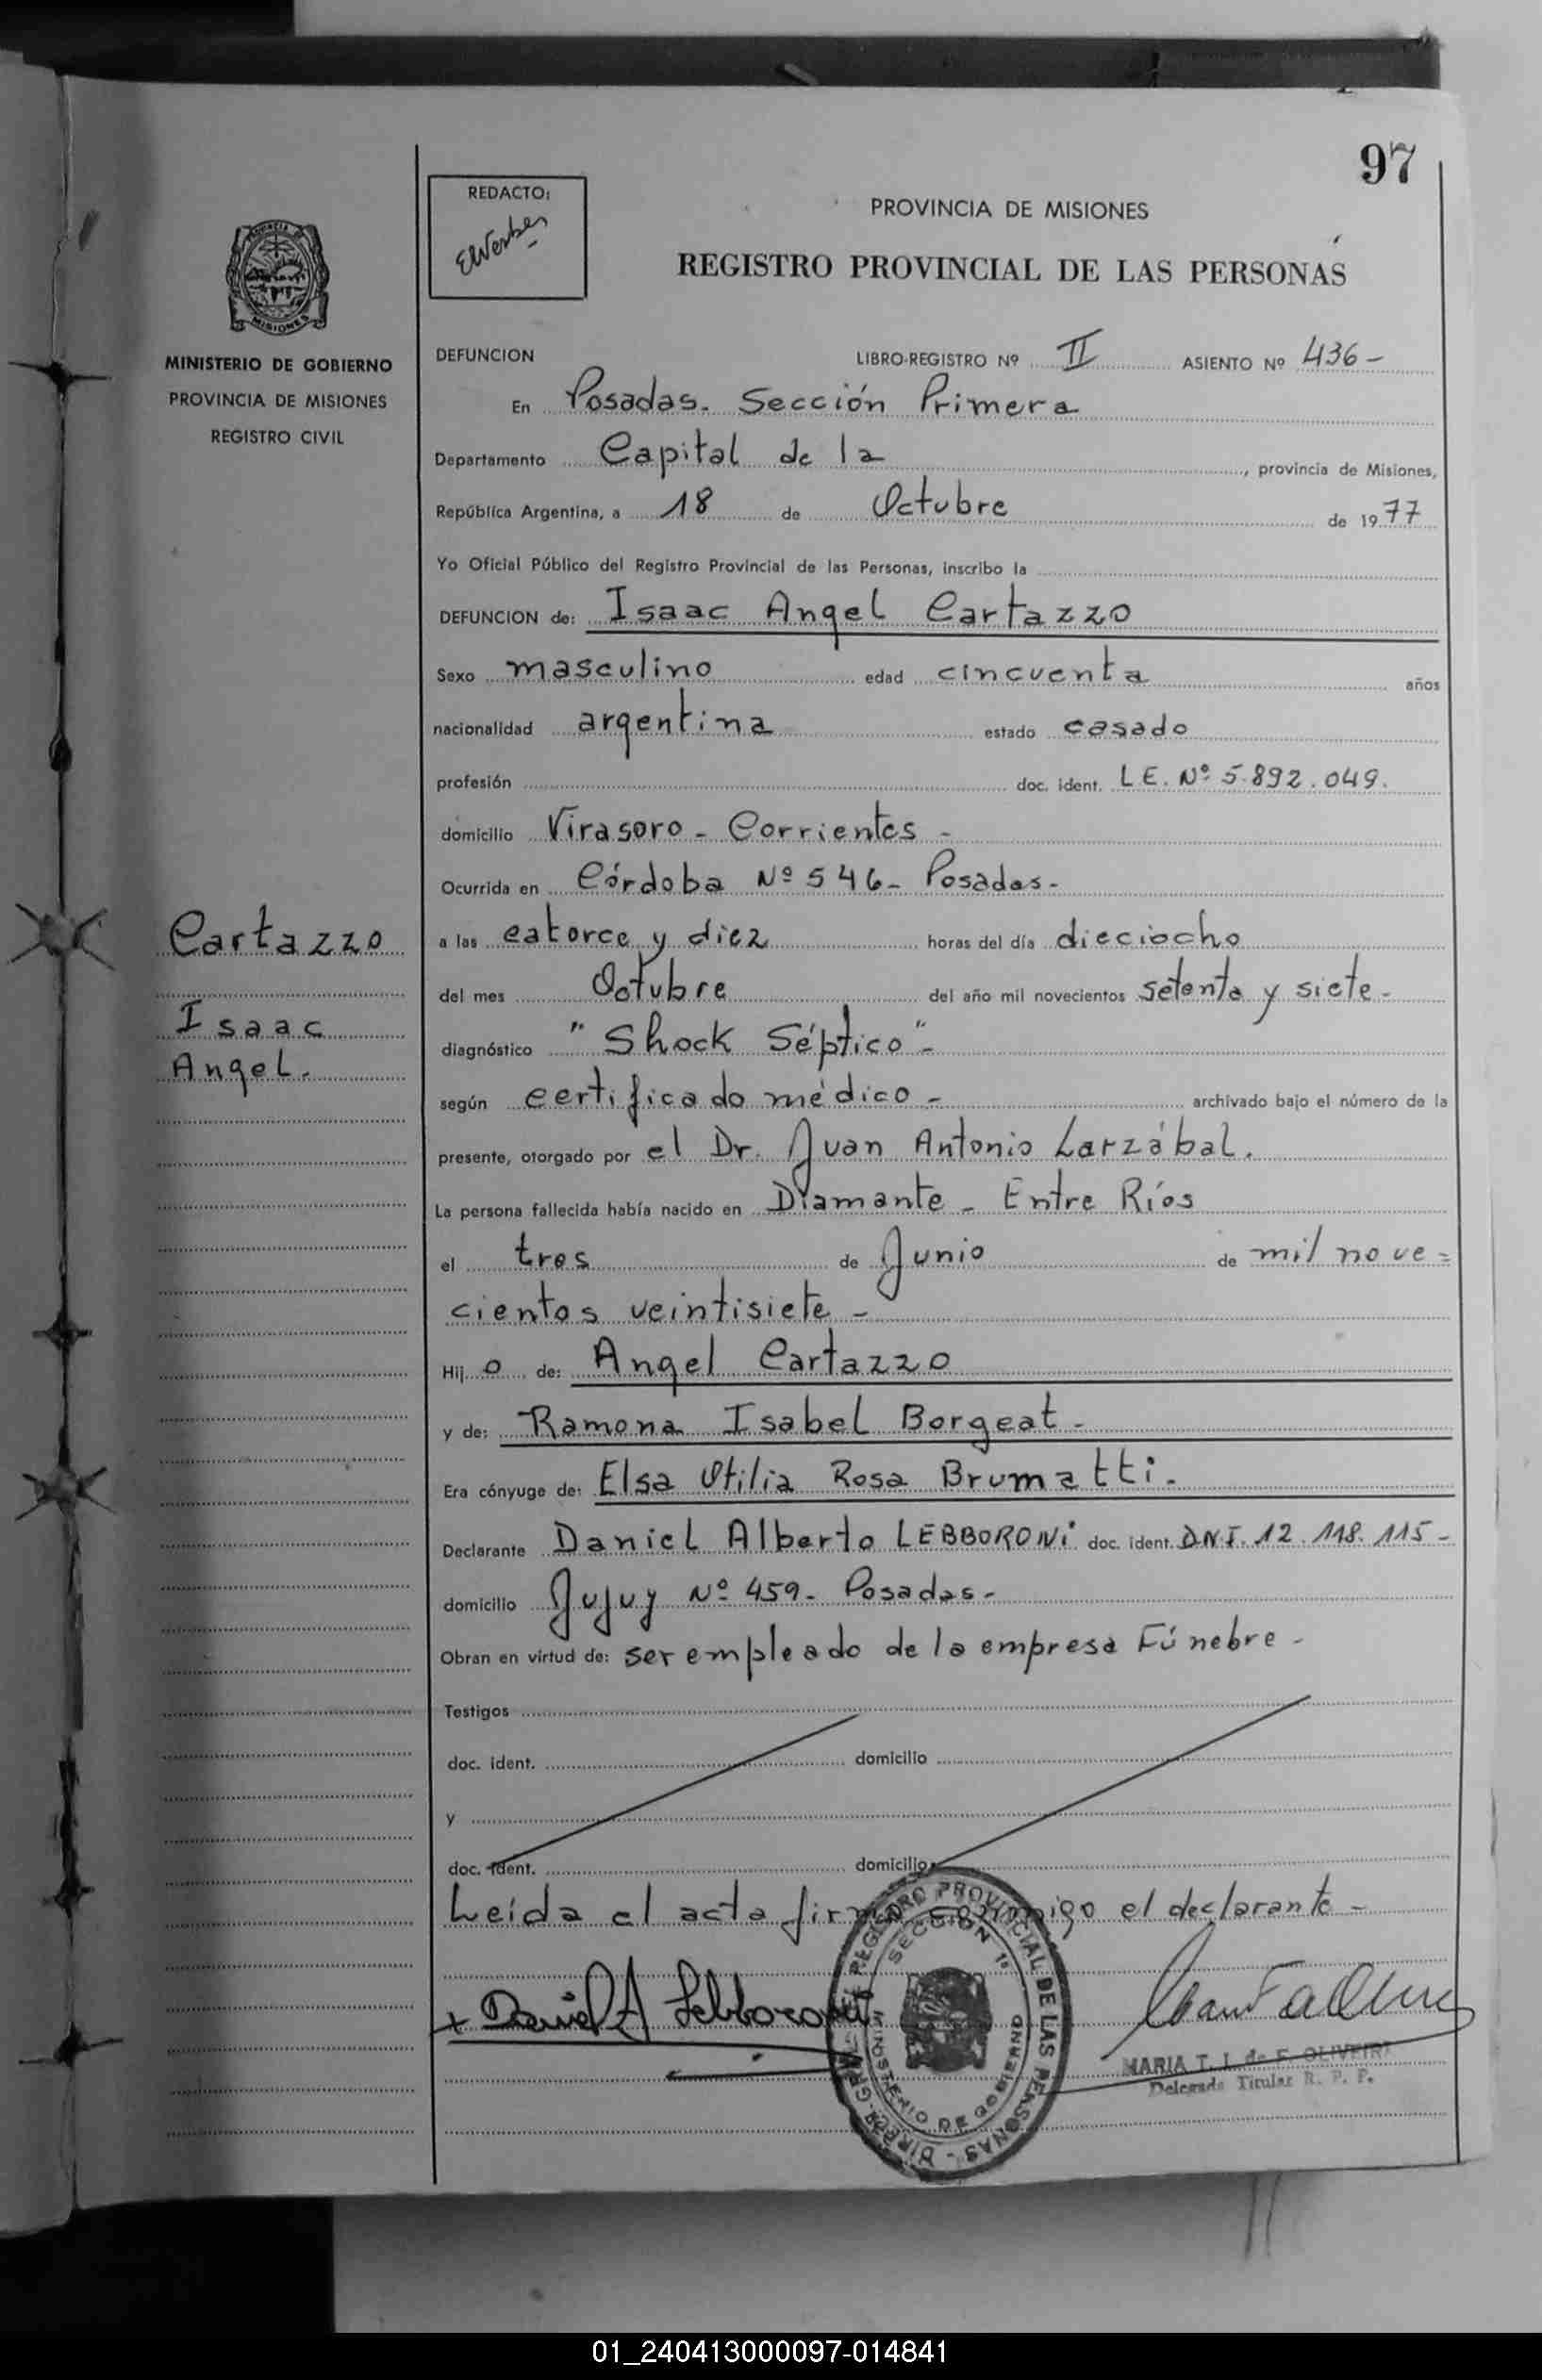 97
REDACTO:
PROVINCIA DE MISIONES
REGISTRO PROVINCIAL DE LAS PERSONAS
MISIONES
MINISTERIO DE GOBIERNO
PROVINCIA DE MISIONES
REGISTRO CIVIL
DEFUNCION LIBRO-REGISTRO Nº II ASIENTO Nº 436-
En Posadas. Sección Primera
Departamento Capital de la, provincia de Misiones,
República Argentina, a 18 de Octubre de 1977
Yo Oficial Público del Registro Provincial de las Personas, inscribo la
DEFUNCION de: Isaac Angel Cartazzo
Sexo masculino edad cincuenta años
nacionalidad argentina estado casado
profesión doc. ident. L E. Nº 5.892.049.
domicilio Virasoro - Corrientes -
Ocurrida en Córdoba Nº 546- Posadas-
Cartazzo
a las catorce y diez horas del día dieciocho
del mes Octubre del año mil novecientos setenta y siete-
Isaac
diagnóstico "Shock Séptico"-
Angel.
según certificado médico - archivado bajo el número de la
presente, otorgado por el Dr. Juan Antonio Larzábal.
La persona fallecida había nacido en Diamante - Entre Ríos
el tres de Junio de mil nove=
cientos veintisiete-
Hijo de: Angel Cartazzo
y de: Ramona Isabel Borgeat-
Era cónyuge de: Elsa Otilia Rosa Brumatti.
Declarante Daniel Alberto LEBBORONi doc. ident. D.N.I. 12.118.115-
domicilio Jujuy Nº 459- Posadas-
Obran en virtud de: ser empleado de la empresa Fúnebre-
Testigos
doc. ident. domicilio
y
doc. ident. domicilio
Leída el acta firma conmigo el declarante-
Daniel A Lebboroni
REGISTRO PROVINCIAL DE LAS PERSONAS
SECCION 1ª
MINISTERIO DE GOBIERNO
MARIA T. I. de F. OLIVEIRA
Delegada Titular R. P. P.
01_240413000097-014841